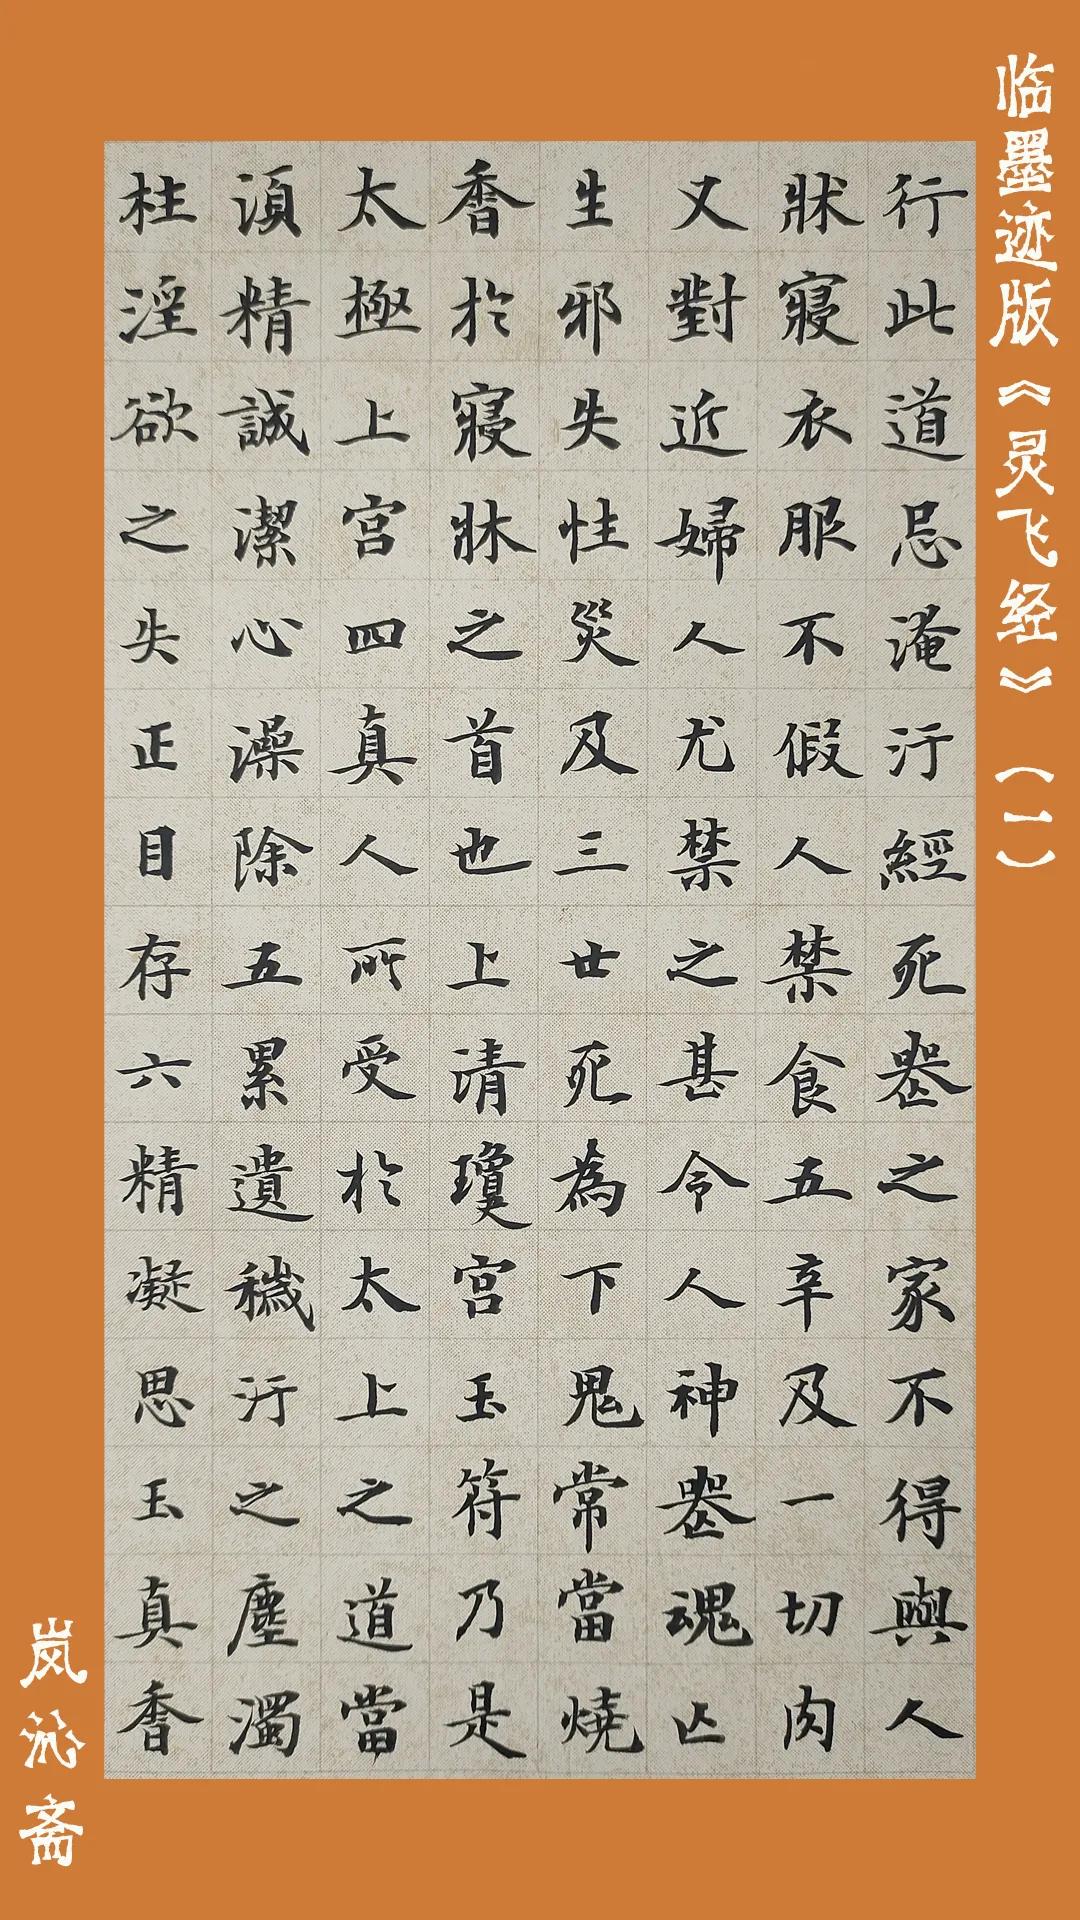 临墨迹版《灵飞经》（一）
行此道忌淹汙經死喪之家不得與人
牀寢衣服不假人禁食五辛及一切肉
又對近婦人尤禁之甚令人神喪魂亡
生邪失性災及三世死為下鬼常當燒
香於寢牀之首也上清瓊宫玉符乃是
太極上宫四真人所受於太上之道當
湏精誠潔心澡除五累遺穢汙之塵濁
杜淫欲之失正目存六精凝思玉真香
岚沁斋